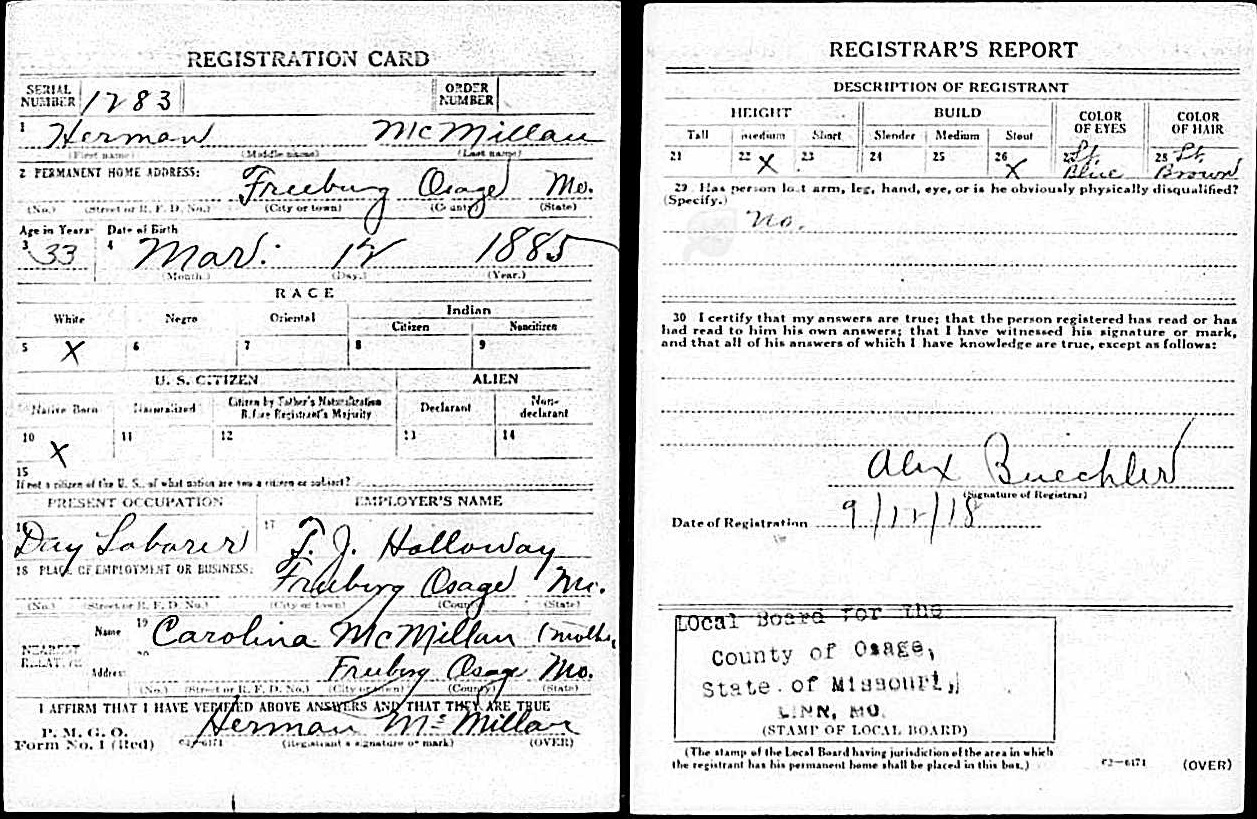 REGISTRATION CARD
SERIAL NUMBER 1283 ORDER NUMBER
1 Herman McMillan
(First name) (Middle name) (Last name)
2 PERMANENT HOME ADDRESS: Freeburg Osage Mo.
(No.) (Street or R. F. D. No.) (City or town) (County) (State)
Age in Years Date of Birth
3 33 4 Mar. 12 1885
(Month.) (Day.) (Year.)
RACE
White Negro Oriental Indian
Citizen Noncitizen
5 X 6 7 8 9
U. S. CITIZEN ALIEN
Native Born Naturalized Citizen by Father's Naturalization Before Registrant's Majority Declarant Non-declarant
10 X 11 12 13 14
15
If not a citizen of the U. S., of what nation are you a citizen or subject?
PRESENT OCCUPATION EMPLOYER'S NAME
16 Day Laborer 17 T. J. Holloway
18 PLACE OF EMPLOYMENT OR BUSINESS: Freeburg Osage Mo.
(No.) (Street or R. F. D. No.) (City or town) (County) (State)
NEAREST RELATIVE
Name 19 Carolina McMillan (mother
Address 20 Freeburg Osage Mo.
(No.) (Street or R. F. D. No.) (City or town) (County) (State)
I AFFIRM THAT I HAVE VERIFIED ABOVE ANSWERS AND THAT THEY ARE TRUE
P. M. G. O.
Form No. 1 (Red) Herman McMillan
(Registrant's signature or mark) (OVER)
REGISTRAR'S REPORT
DESCRIPTION OF REGISTRANT
HEIGHT BUILD COLOR OF EYES COLOR OF HAIR
Tall Medium Short Slender Medium Stout
21 22 X 23 24 25 26 X 27 Lt. Blue 28 Lt. Brown
29 Has person lost arm, leg, hand, eye, or is he obviously physically disqualified?
(Specify.) no.
30 I certify that my answers are true; that the person registered has read or has
had read to him his own answers; that I have witnessed his signature or mark,
and that all of his answers of which I have knowledge are true, except as follows:
Alex Buechler
(Signature of Registrar)
Date of Registration 9/12/18
Local Board for the
County of Osage,
State of Missouri,
LINN, MO.
(STAMP OF LOCAL BOARD)
(The stamp of the Local Board having jurisdiction of the area in which
the registrant has his permanent home shall be placed in this box.)
(OVER)